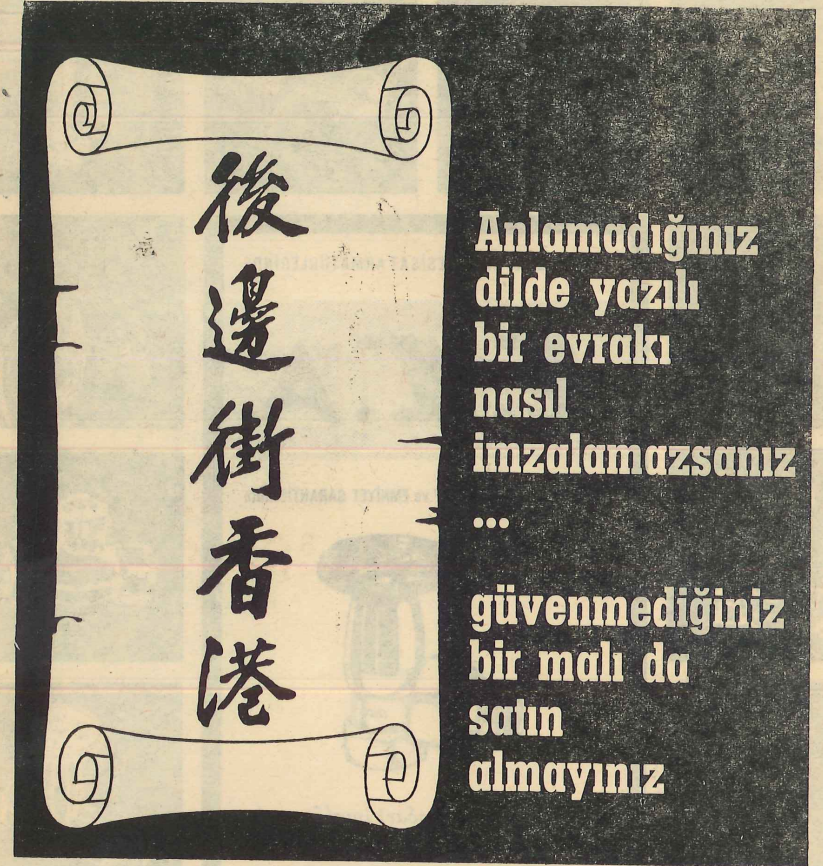 後邊街香港
Anlamadığınız
dilde yazılı
bir evrakı
nasıl
imzalamazsanız
...
güvenmediğiniz
bir malı da
satın
almayınız